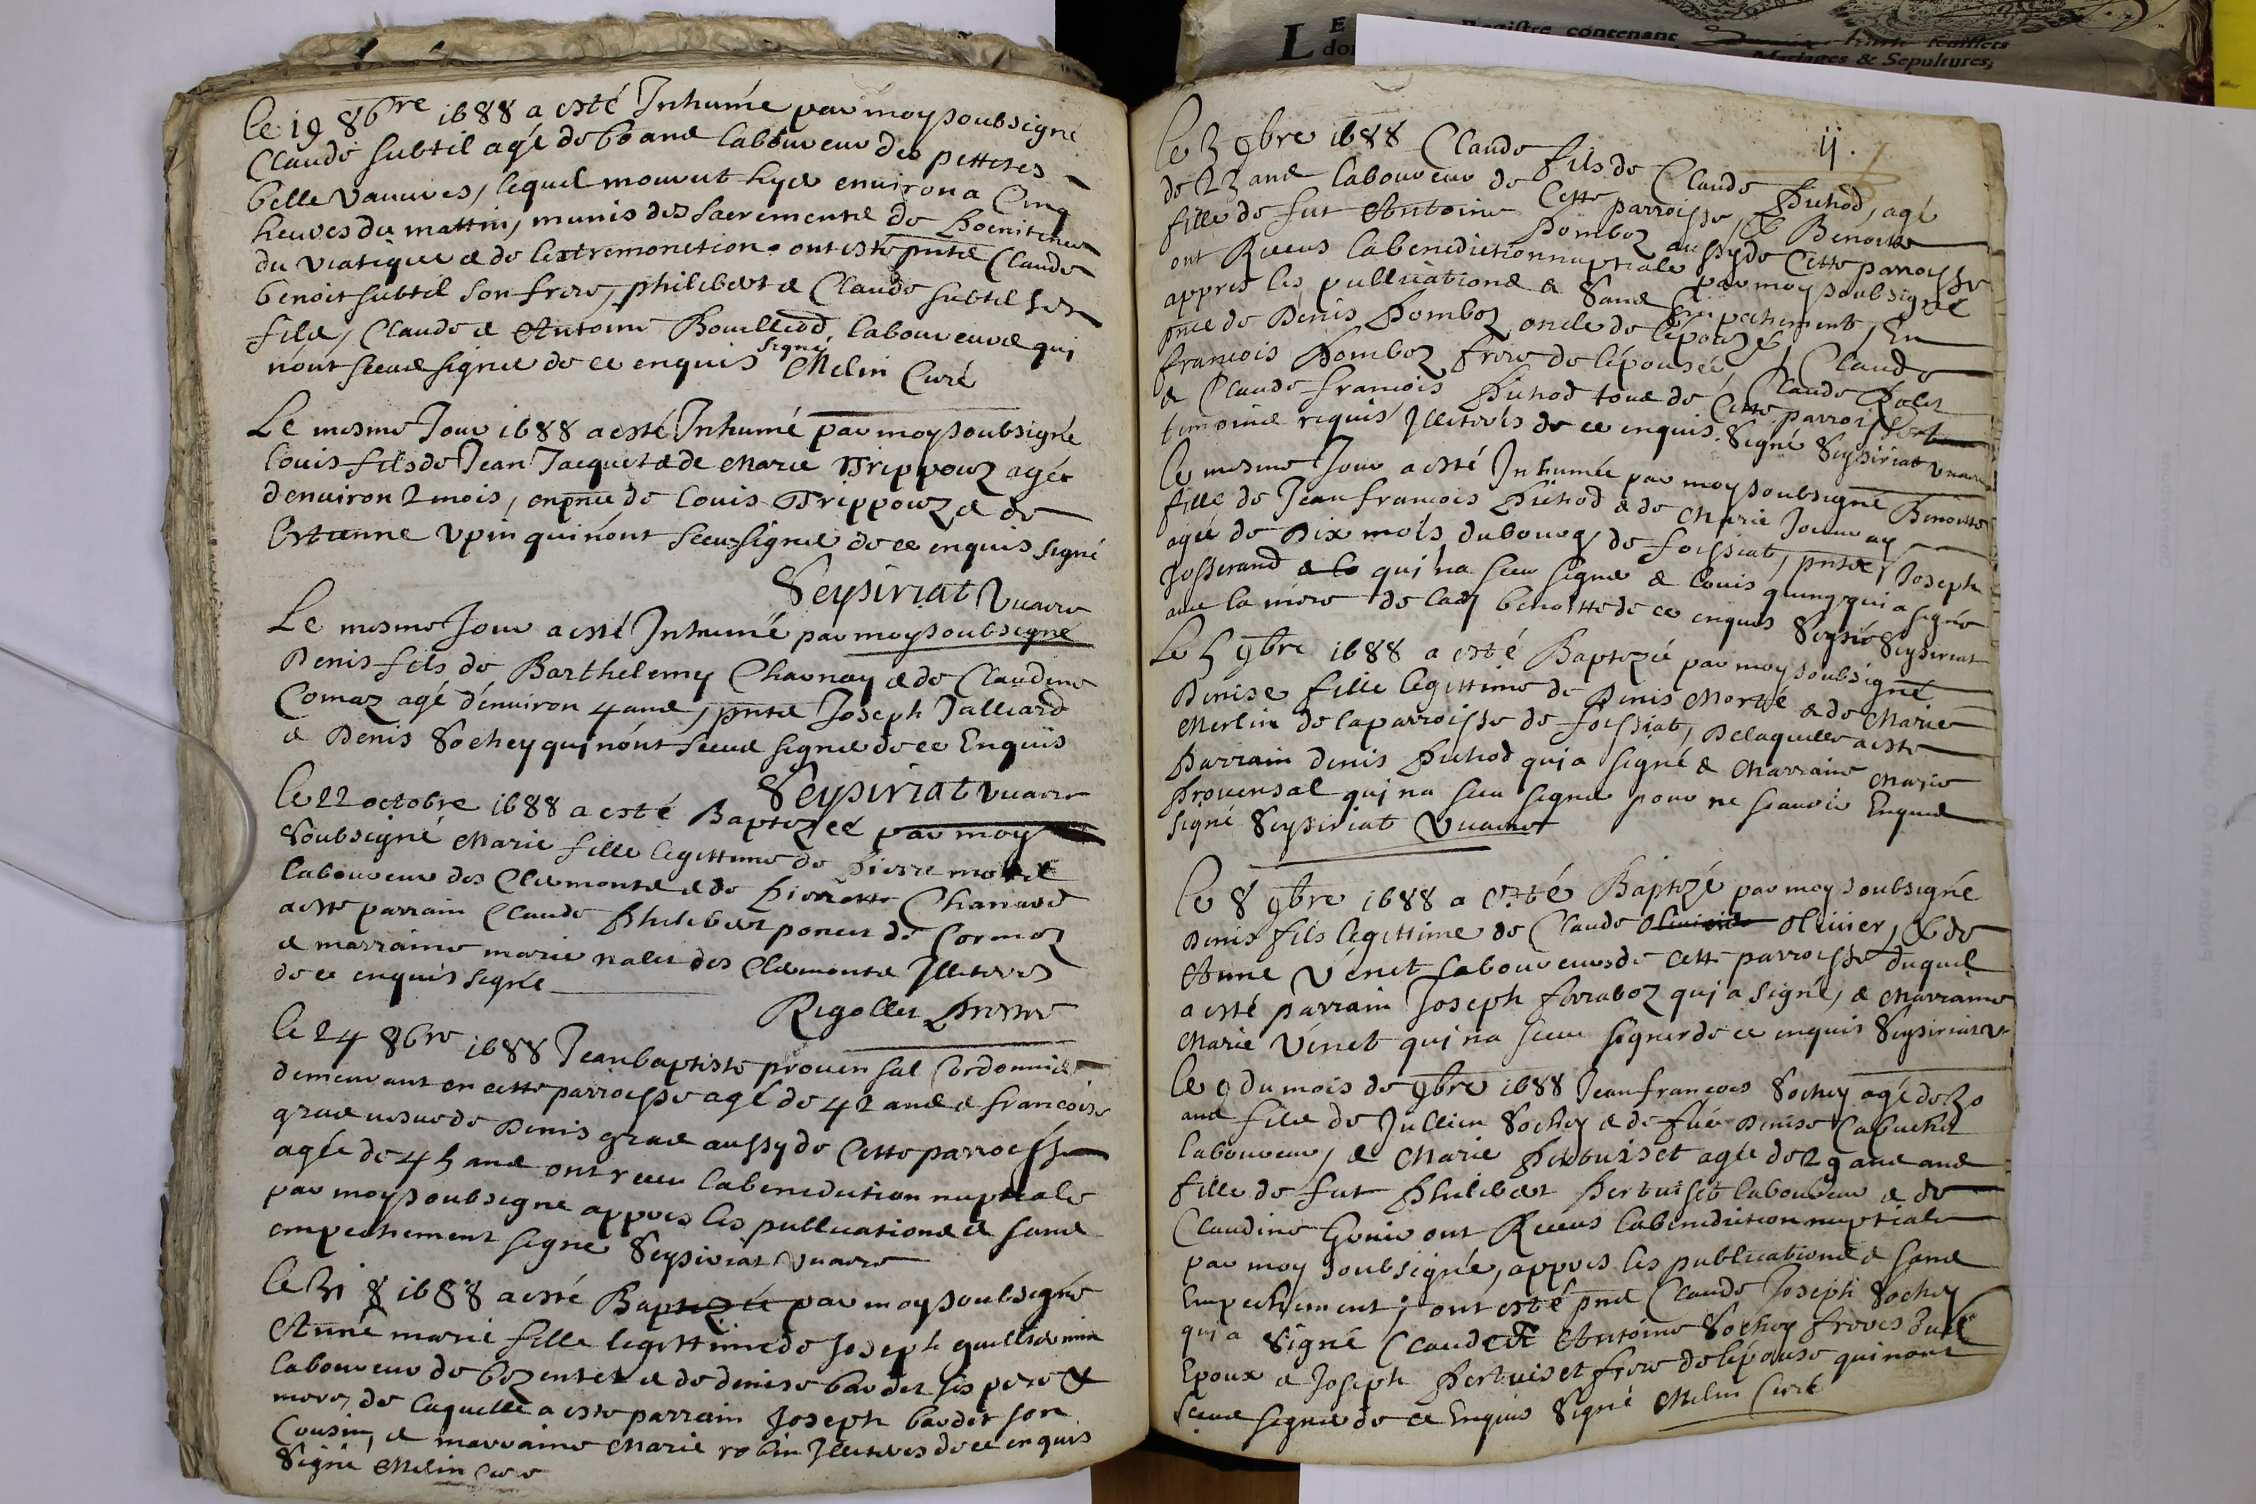 le 19 8bre 1688 a esté Inhumé par moy soubsigné
Claude subtil agé de 60 ans laboureur des petites
belle vauures, lequel mourut hyer environ a Cinq
heures du mattin, munis des sacrements de Poenitence
du viatique & de lextremonction. ont esté pnts Claude
benoit subtil son frere, philibert & Claude subtil ses
fils, Claude & Antoine Bouilliod, laboureurs qui
n'ont sceus signer de ce enquis signé Melin Curé
Le mesme Jour 1688 a esté Inhumé par moy soubsigné
Louis fils de Jean Jacquet & de Marie Trippouz agée
denuiron 2 mois, en pnce de Louis Trippouz & de
Estienne vpin qui n'ont sceu signer de ce enquis signé
Seysiriat vicaire
Le mesme Jour a esté Inhumé par moy soubsigné
Denis fils de Barthelemy Charnay & de Claudine
Comaz agé d'enuiron 4 ans, pnts Joseph Jalliard
& Denis Sochey qui n'ont sceus signer de ce Enquis
Seysiriat vicaire
le 22 octobre 1688 a esté Baptezeé par moy
Soubsigné Marie fille legittime de Pierre morel
laboureur des Clemonts & de Pierrette Chanard
a esté parrain Claude Philibert poncet de Cormoz
& marraine marie nalet des Clemonts Illiterés
de ce enquis signé
Rigollet Prestre
le 24 8bre 1688 Jean baptiste prouensal Cordonnier
demeurant en cette parroisse agé de 42 ans & francoise
gras vesue de Denis gras aussy de Cette parroisse
agée de 45 ans ont receu la benediction nuptiale
par moy soubsigne appres les publications & sans
empechement signé Seysiriat vicaire
le 31 8 1688 a esté Baptezée par moy soubsigné
Anne marie fille legittime de Joseph guilliermin
laboureur de bezentet & de denise baudet ses pere &
mere, de laquelle a esté parrain Joseph baudet son
Cousin, & marraine Marie robin Illiterés de ce enquis
Signé Melin Curé
ij.
le 3 9bre 1688 Claude fils de Claude Puthod, agé
de 23 ans laboureur de Cette parroisse, & Benoitte
fille de fut Antoine Pomboz aussy de Cette parroisse
ont Receus la benediction nuptiale par moy soubsigné
appres les publications & Sans Empechement, En
pnce de Denis Pomboz oncle de l'epouze, Claude
francois Pomboz frere de l'épousée, Claude
& Claude francois Puthod tous de Cette parroisse
temoins requis Illiterés de ce enquis. Signé Seysiriat vicaire
le mesme Jour a esté Inhumée par moy soubsigné Benoitte
fille de Jean francois Puthod & de Marie
agée de Dix mois du bourg de foissiat, pnts, Joseph
Josserand qui na sceu signer & Louis qui a signé
auec la mere de lad benoitte de ce enquis Signé Seysiriat
Le 5 9bre 1688 a esté Baptezée par moy soubsigné
Denise fille legittime de Denis Morté & de Marie
Merlin de la parroisse de foissiat, De laquelle a esté
Parrain denis Puthod qui a signé & Marraine Marie
Prouensal qui na sceu signer pour ne scauoir Enquis
signé Seysiriat Vicaire
le 8 9bre 1688 a Esté Baptezé par moy soubsigné
Denis fils legittime de Claude Oliuier, & de
Anne Vénet laboureurs de cette parroisse duquel
a esté parrain Joseph ferraboz qui a signé, & Marraine
Marie Vénet qui na sceu signer de ce enquis Seysiriat vic
le 9 du mois de 9bre 1688 Jean francois Sochey agé de 30
ans fils de Jullien Sochey & de fuë Denise Cabuchet
laboureur, & Marie Pertuiset agée de 29 ans ans
fille de fut Philibert Pertuiset laboureur & de
Claudine ont Receus la benediction nuptiale
par moy soubsigné, appres les publications & sans
Empechement; ont esté pnts Claude Joseph Sochey
qui a signé Claude & Antoine Sochey freres dud
Epoux & Joseph Pertuiset frere de l'épouse qui n'ont
sceus signer de ce Enquis Signé Melin Curé